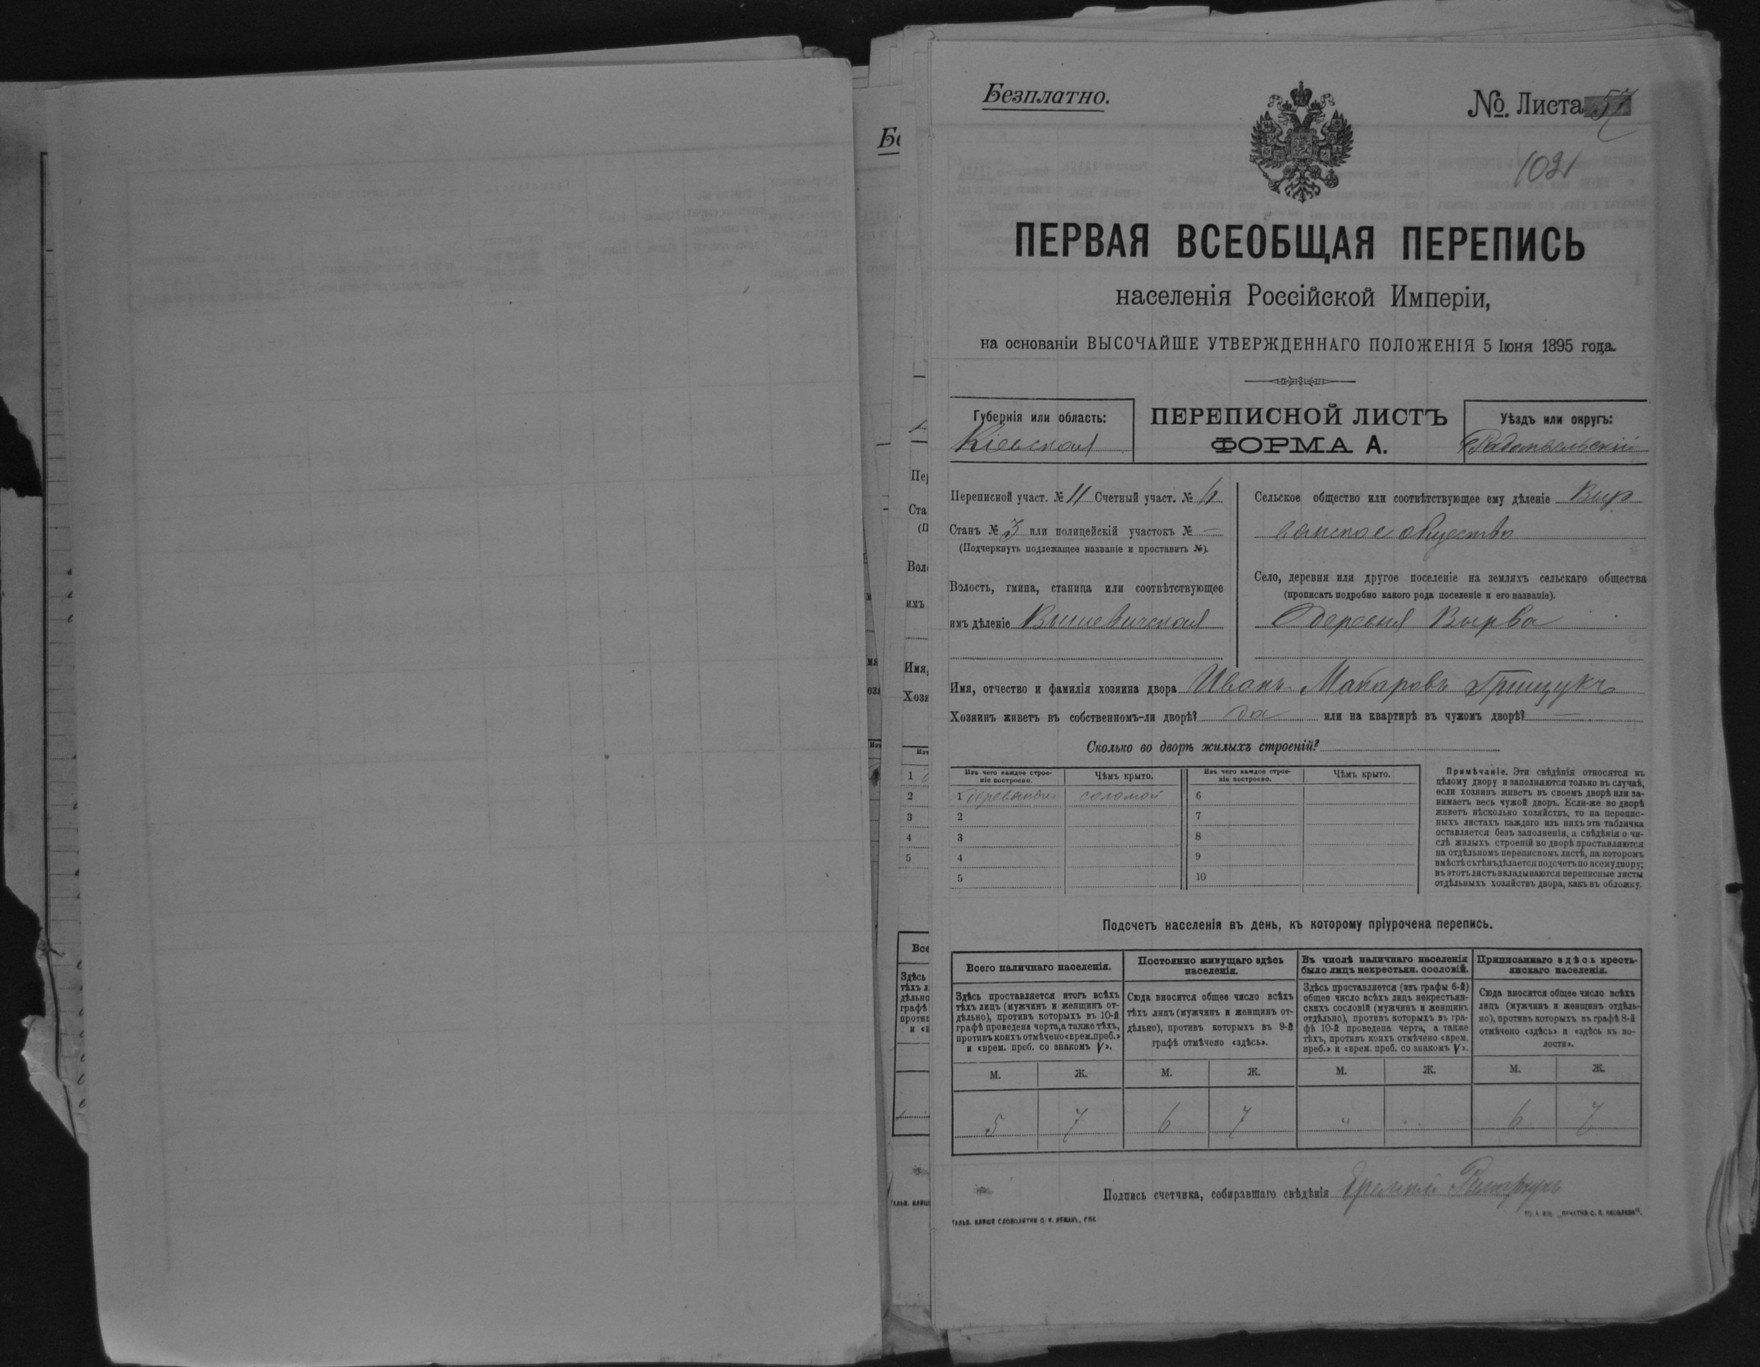 Безплатно.
№. Листа 57
1021
ПЕРВАЯ ВСЕОБЩАЯ ПЕРЕПИСЬ
населенія Россійской Имперіи,
на основаніи ВЫСОЧАЙШЕ УТВЕРЖДЕННАГО ПОЛОЖЕНІЯ 5 Іюня 1895 года.
Губернія или область:
Кіевская
ПЕРЕПИСНОЙ ЛИСТЪ
ФОРМА А.
Уѣздъ или округъ:
Радомысльскій
Переписной участ. № 11 Счетный участ. № 6
Станъ № 3 или полицейскій участокъ № —
(Подчеркнуть подлежащее названіе и проставить №).
Волость, гмина, станица или соотвѣтствующее
имъ дѣленіе Вышевичская
Сельское общество или соотвѣтствующее ему дѣленіе Выр
вянское общество
Село, деревня или другое поселеніе на земляхъ сельскаго общества
(прописать подробно какого рода поселеніе и его названіе).
деревня Вырва
Имя, отчество и фамилія хозяина двора Иванъ Макаровъ Грищукъ
Хозяинъ живетъ въ собственномъ-ли дворѣ? да или на квартирѣ въ чужомъ дворѣ? —
Сколько во дворѣ жилыхъ строеній?
Изъ чего каждое строеніе построено. Чѣмъ крыто. Изъ чего каждое строеніе построено. Чѣмъ крыто.
1 соломой 6
2 7
3 8
4 9
5 10
Примѣчаніе. Эти свѣдѣнія относятся къ
цѣлому двору и заполняются только въ случаѣ,
если хозяинъ живетъ въ своемъ дворѣ или за-
нимаетъ весь чужой дворъ. Если-же во дворѣ
живетъ нѣсколько хозяйствъ, то на перепис-
ныхъ листахъ каждаго изъ нихъ эта табличка
оставляется безъ заполненія, а свѣдѣнія о чи-
слѣ жилыхъ строеній во дворѣ проставляются
на отдѣльномъ переписномъ листѣ, на которомъ
вмѣстѣ съ тѣмъ дѣлается подсчетъ по всему двору;
въ этотъ листъ вкладываются переписные листы
отдѣльныхъ хозяйствъ двора, какъ въ обложку.
Подсчетъ населенія въ день, къ которому пріурочена перепись.
Всего наличнаго населенія.
Здѣсь проставляется итогъ всѣхъ
тѣхъ лицъ (мужчинъ и женщинъ от-
дѣльно), противъ которыхъ въ 10-й
графѣ проведена черта, а также тѣхъ,
противъ коихъ отмѣчено «врем. преб.»
и «врем. преб. со знакомъ V».
Постоянно живущаго здѣсь
населенія.
Сюда вносится общее число всѣхъ
тѣхъ лицъ (мужчинъ и женщинъ от-
дѣльно), противъ которыхъ въ 9-й
графѣ отмѣчено «здѣсь».
Въ числѣ наличнаго населенія
было лицъ некрестьян. сословій.
Здѣсь проставляется (изъ графы 6-й)
общее число всѣхъ лицъ некрестьян-
скихъ сословій (мужчинъ и женщинъ
отдѣльно), противъ которыхъ въ гра-
фѣ 10-й проведена черта, а также
тѣхъ, противъ коихъ отмѣчено «врем.
преб.» и «врем. преб. со знакомъ V».
Приписаннаго здѣсь кресть-
янскаго населенія.
Сюда вносится общее число всѣхъ
лицъ (мужчинъ и женщинъ отдѣль-
но), противъ которыхъ въ графѣ 8-й
отмѣчено «здѣсь» и «здѣсь въ во-
лости».
М. Ж. М. Ж. М. Ж. М. Ж.
5 7 6 7 " .. 6 7
Подпись счетчика, собиравшаго свѣдѣнія